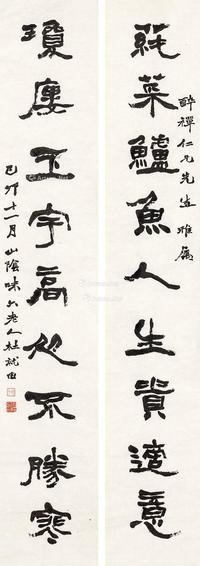 莼菜鱸魚人生貴適意
醉禪仁兄先生雅屬
瓊廔玉宇高処不勝寒
己卯十一月山陰味六老人杜就田